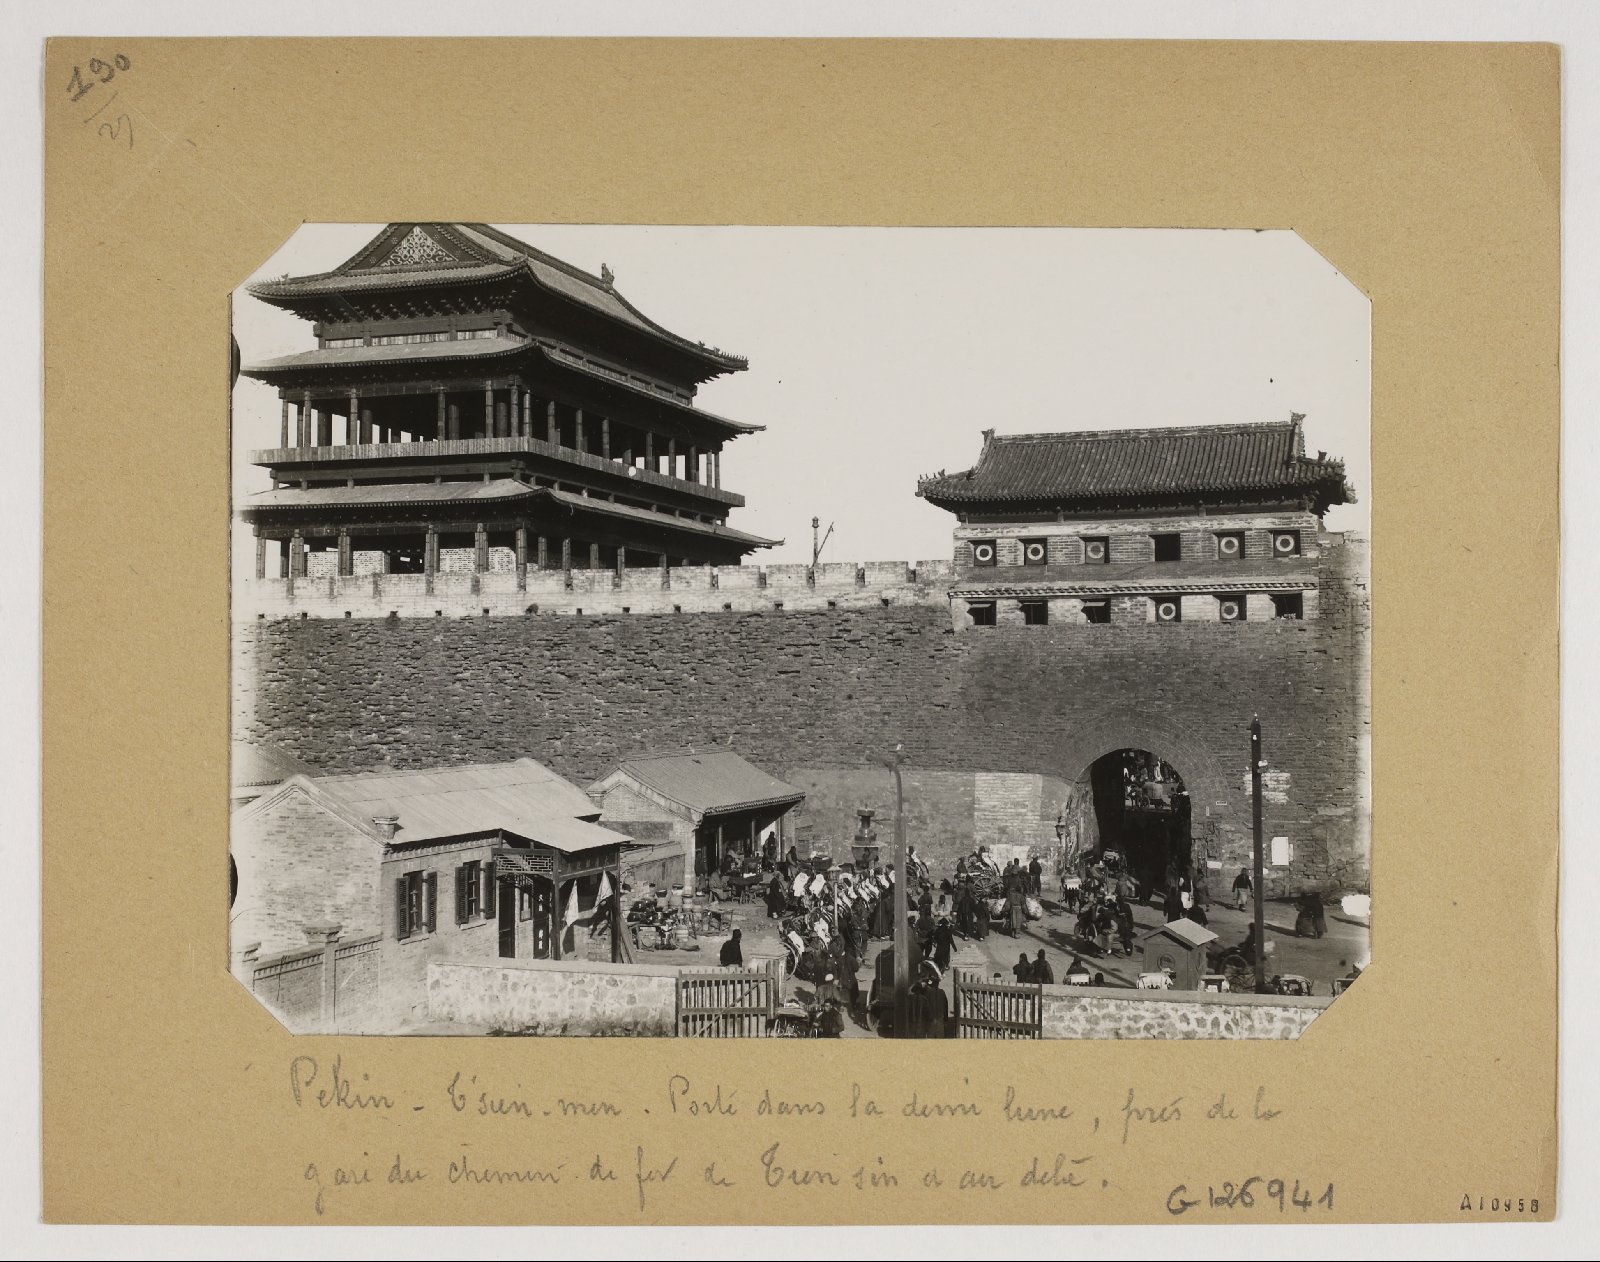 190
27
Pekin - T'sien-men. Porte dans la demi lune, près de la
gare du chemin de fer de Tien sin et au delà.
G126941
A10958